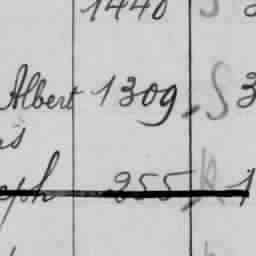 1440 S
Albert 1309, S 3
is
eph 255, R 1